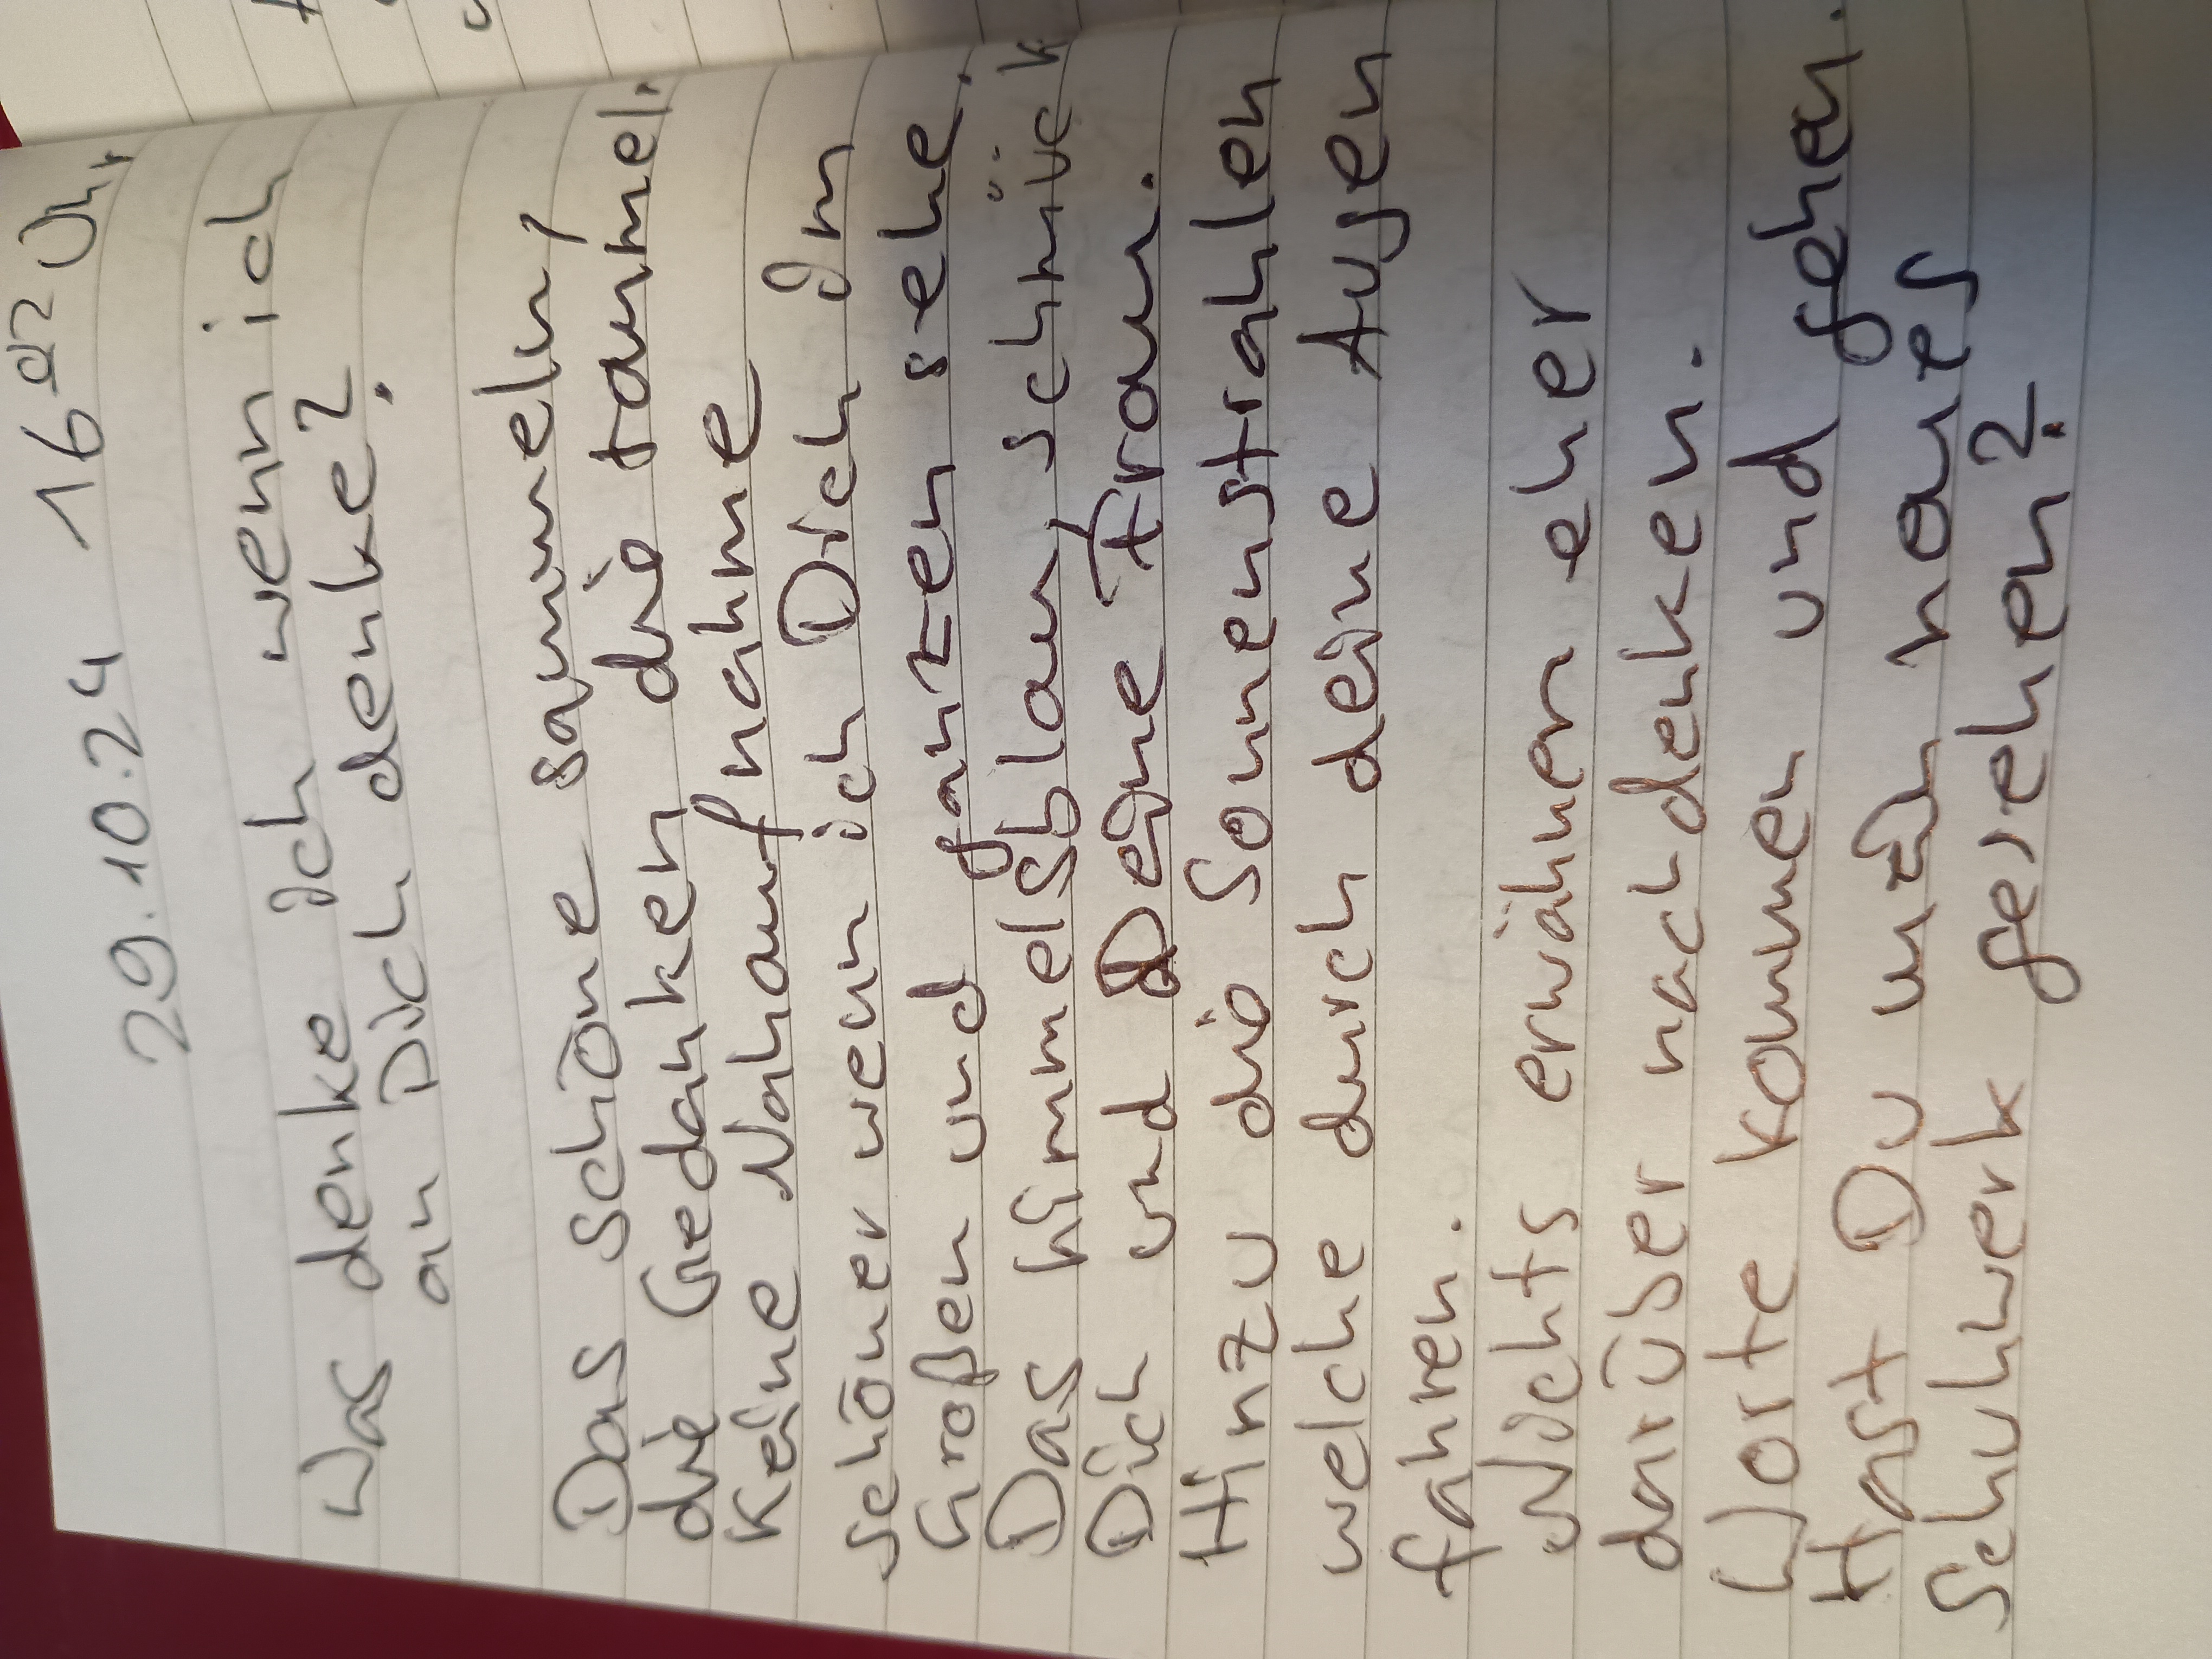 29.10.24 16 02 Uhr
Was denke ich wenn ich
an Dich denke?
Das schöne sammeln,
die Gedanken die taumel.
Keine Nahaufnahme
schöner wenn ich Dich im
Großen und ganzen sehe.
Das himmelsblau schmück
Dich und Deine Frau.
Hinzu die Sonnenstrahlen
welche durch deine Augen
fahren.
Nichts erwähnen eher
darüber nachdenken.
Worte kommen und gehen.
Hast Du mein neues
Schuhwerk gesehen?